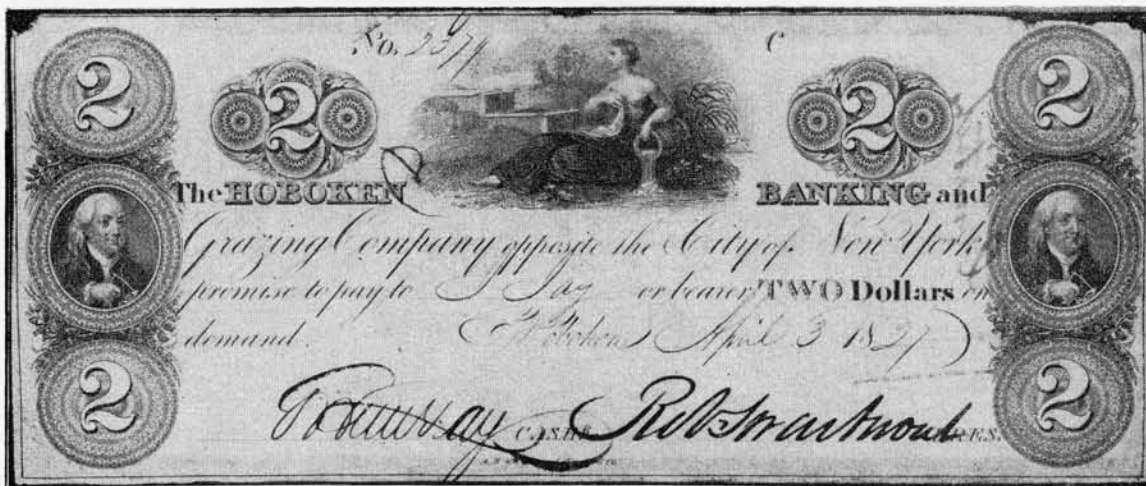 2 No. 2374 C 2
2 2
The HOBOKEN BANKING and
Grazing Company opposite the City of New York
promise to pay to J Jay or bearer TWO Dollars on
demand. Hoboken April 3 1827
2 CASHR. Robt Swartwout PRES. 2